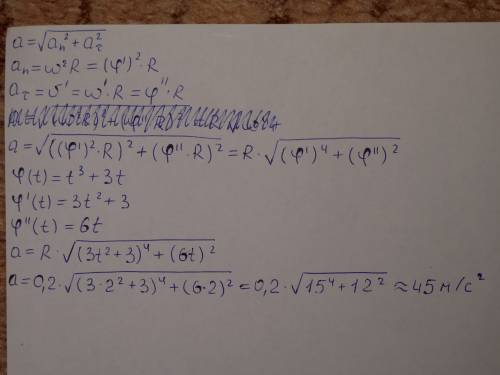 a=√(aₙ²+a_τ²)
aₙ=ω²R=(φ')²·R
a_τ=υ'=ω'·R=φ''·R
a=√(((φ')²·R)²+(φ''·R)²)=R·√((φ')⁴+(φ'')²)
φ(t)=t³+3t
φ'(t)=3t²+3
φ''(t)=6t
a=R·√((3t²+3)⁴+(6t)²)
a=0,2·√((3·2²+3)⁴+(6·2)²)=0,2·√(15⁴+12²)≈45м/с²